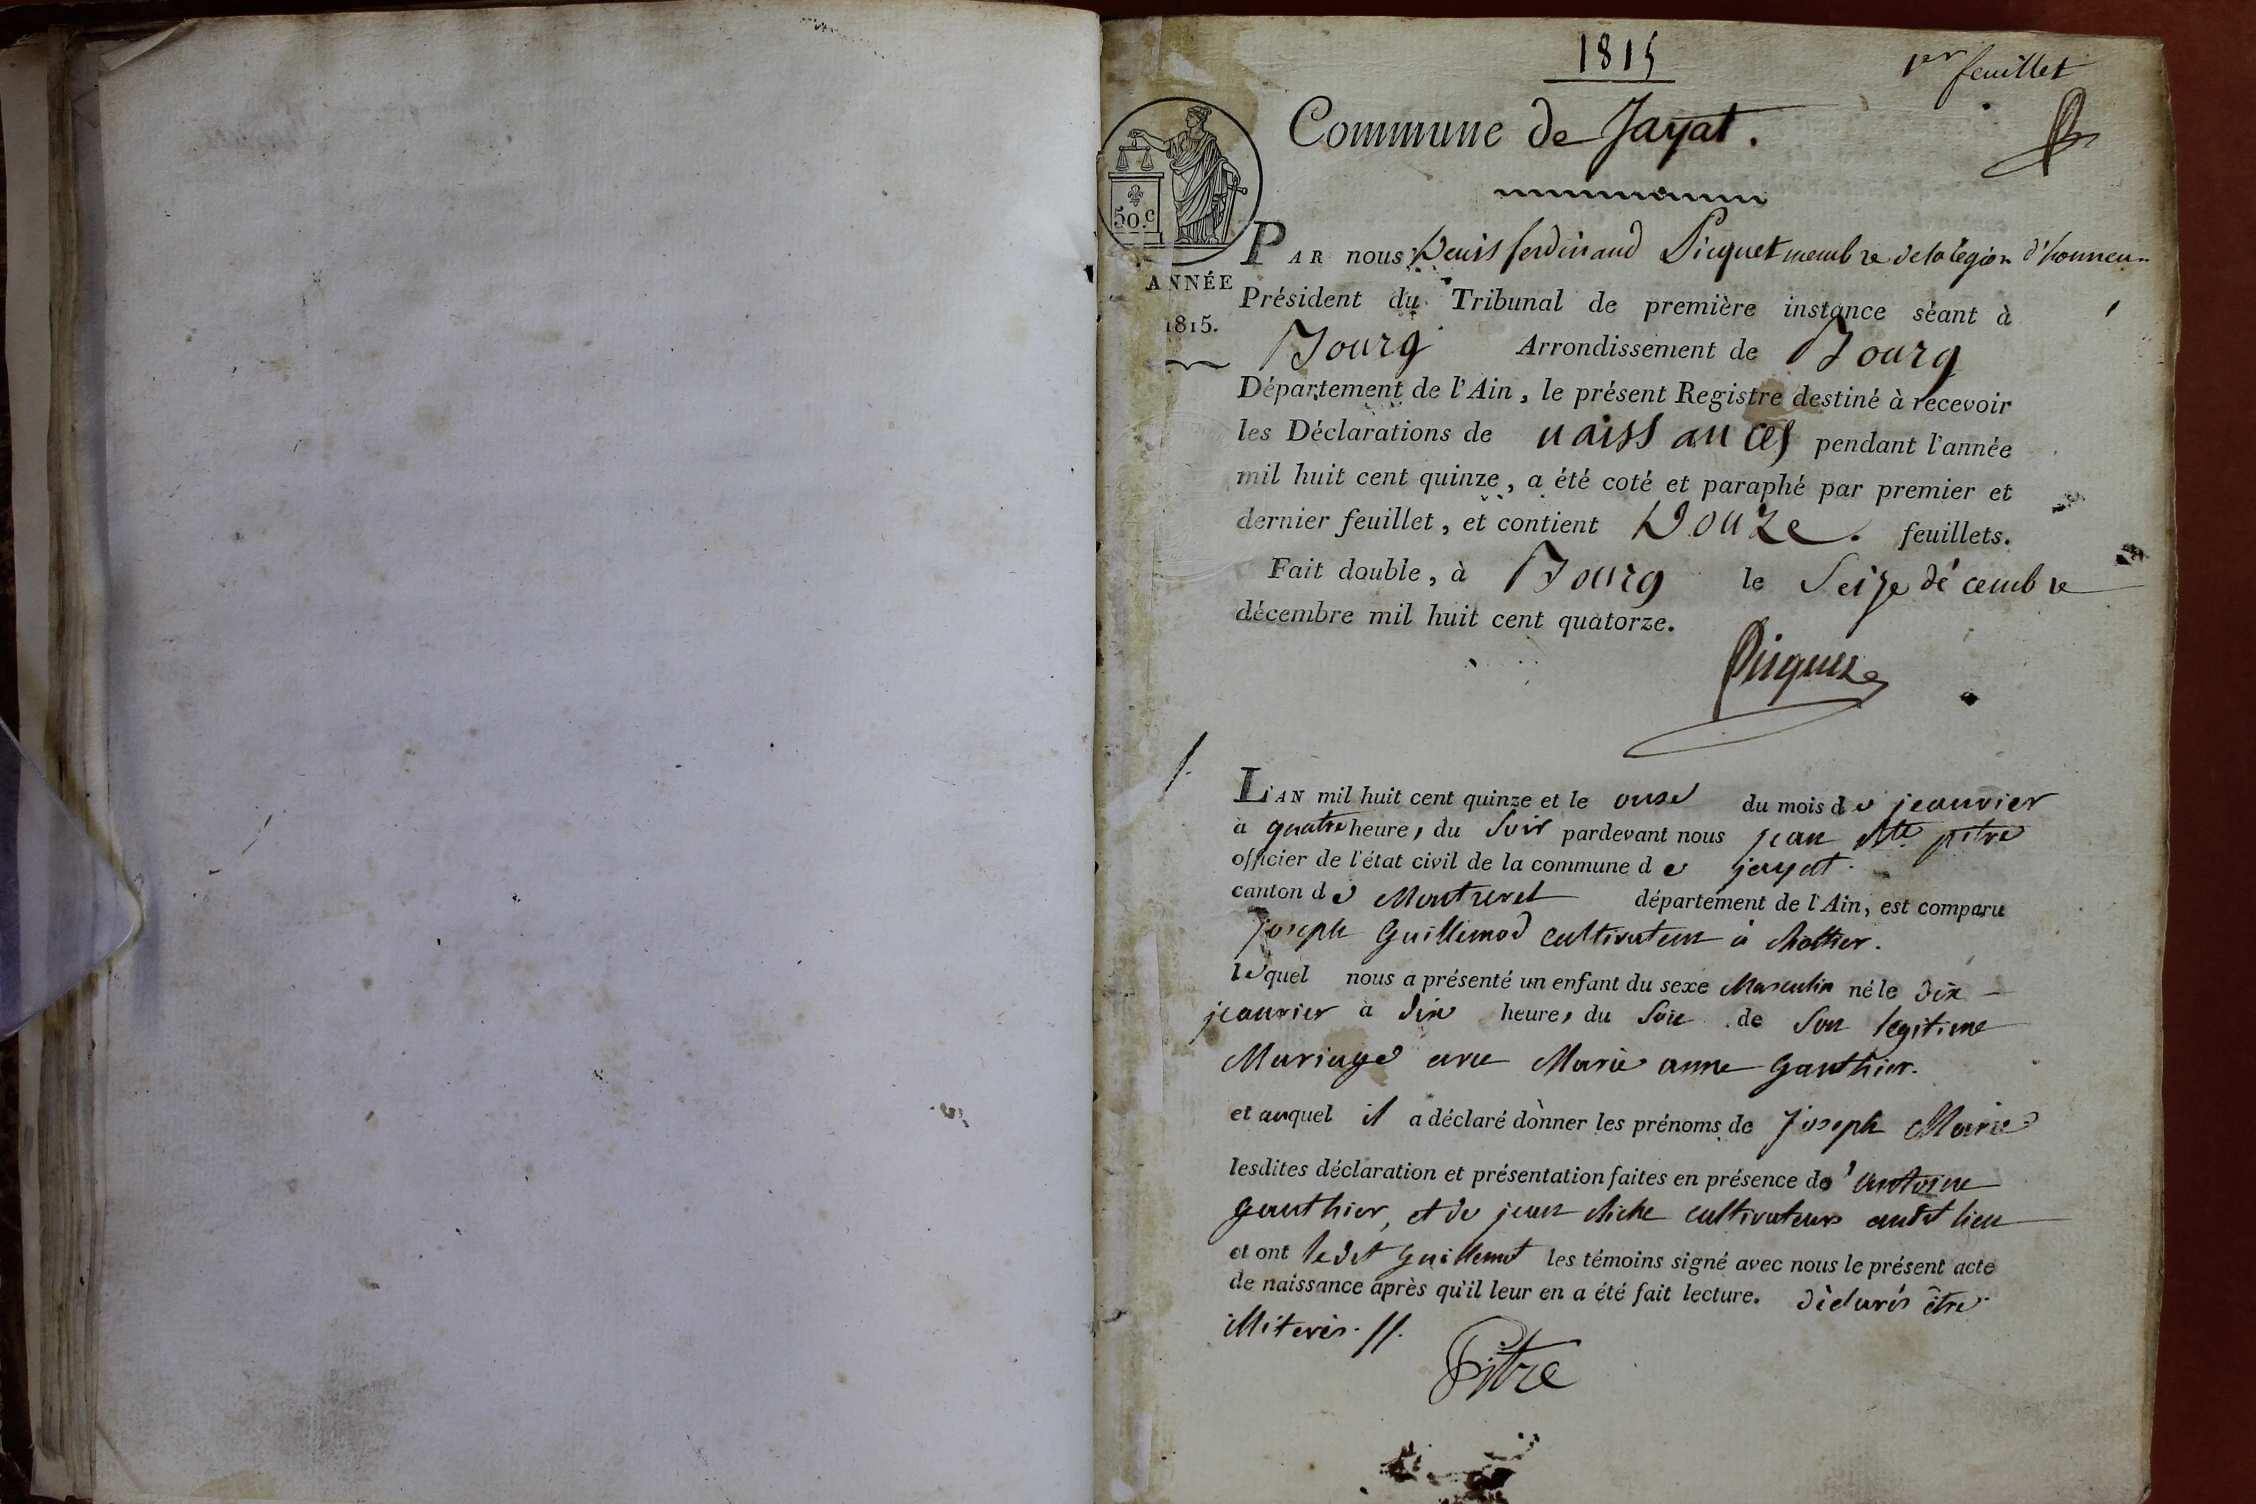 1815
1er feuillet
Commune de Jayat.
50.c
ANNÉE
1815.
PAR nous Denis ferdinand Picquet membre de la légion d'honneur
Président du Tribunal de première instance séant à
Bourg Arrondissement de Bourg
Département de l'Ain, le présent Registre destiné à recevoir
les Déclarations de naissances pendant l'année
mil huit cent quinze, a été coté et paraphé par premier et
dernier feuillet, et contient Douze. feuillets.
Fait double, à Bourg le Seize décembre
décembre mil huit cent quatorze.
Picquet
1.
L'AN mil huit cent quinze et le onze du mois de jeanvier
a quatre heures du Soir pardevant nous jean Bte pitre
officier de l'état civil de la commune de jayat
canton de Montrevel département de l'Ain, est comparu
joseph Guillemod cultivateur à
lequel nous a présenté un enfant du sexe Masculin né le dix
jeanvier à dix heures du Soir de Son legitime
Mariage avec Marie anne Gauthier.
et auquel il a déclaré donner les prénoms de joseph Marie
lesdites déclaration et présentation faites en présence de antoine
gauthier, et de jean cultivateurs audit lieu
et ont ledit Guillemot les témoins signé avec nous le présent acte
de naissance après qu'il leur en a été fait lecture. déclarés être
illiterés. //.
Pitre